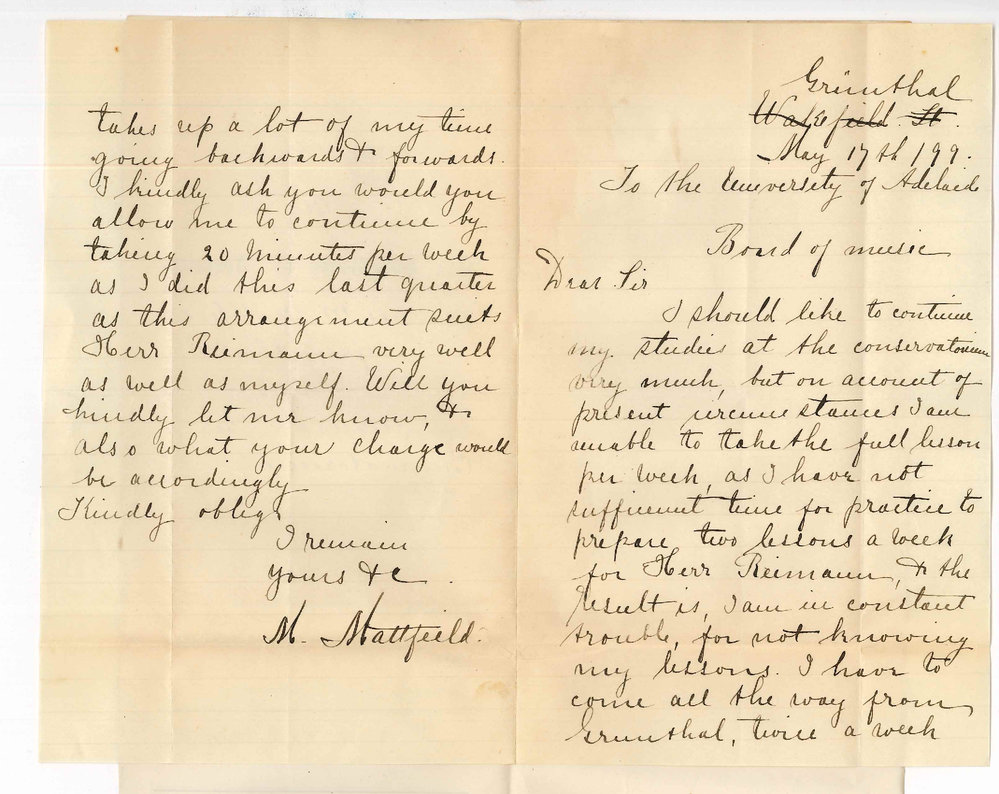 Grünthal
Wakefield St.
May 17th 199.
To the University of Adelaide
Board of music
Dear Sir
I should like to continue
my studies at the conservatorium
very much, but on account of
present circumstances I am
unable to take the full lesson
per week, as I have not
sufficient time for practice to
prepare two lessons a week
for Herr Reimann, & the
result is, I am in constant
trouble, for not knowing
my lessons. I have to
come all the way from
Grunthal, twice a week
takes up a lot of my time
going backwards & forwards.
I kindly ask you would you
allow me to continue by
taking 20 minutes per week
as I did this last quarter
as this arrangement suits
Herr Reimann very well
as well as myself. Will you
kindly let me know, &
also what your charge would
be accordingly
Kindly oblige
I remain
yours &c.
M. Mattfield.